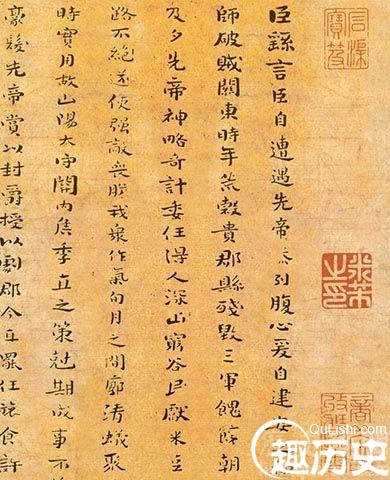 臣繇言臣自遭遇先帝忝列腹心爰自建安
師破賊關東時年荒穀貴郡縣殘毀三軍餽饟朝
及夕先帝神略奇計委任得人深山窮谷民獻米豆
路不絕遂使強敵喪膽我眾作氣旬月之間廓清蟻聚
時實用故山陽太守關內侯季直之策剋期成事不
豪髮先帝賞以封爵授以劇郡今直罷任旅食許
石渠寶笈
QuLishi.com
趣历史